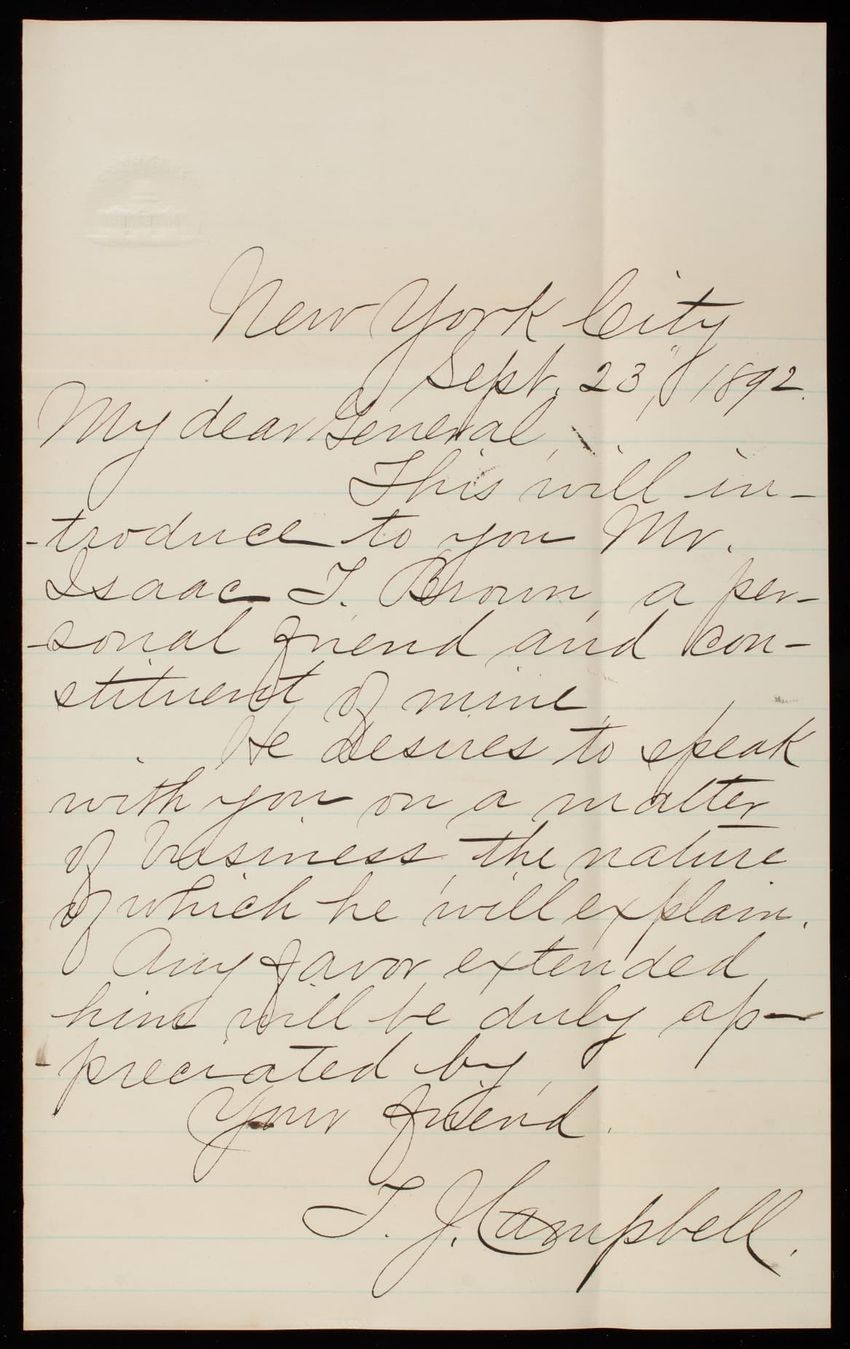 New York City
Sept. 23", 1892.
My dear General,
This will in-
-troduce to you Mr.
Isaac T. Brown, a per-
-sonal friend and con-
stituent of mine.
He desires to speak
with you on a matter
of business, the nature
of which he will explain.
Any favor extended
him will be duly ap-
-preciated by,
Your friend.
T. J. Campbell.